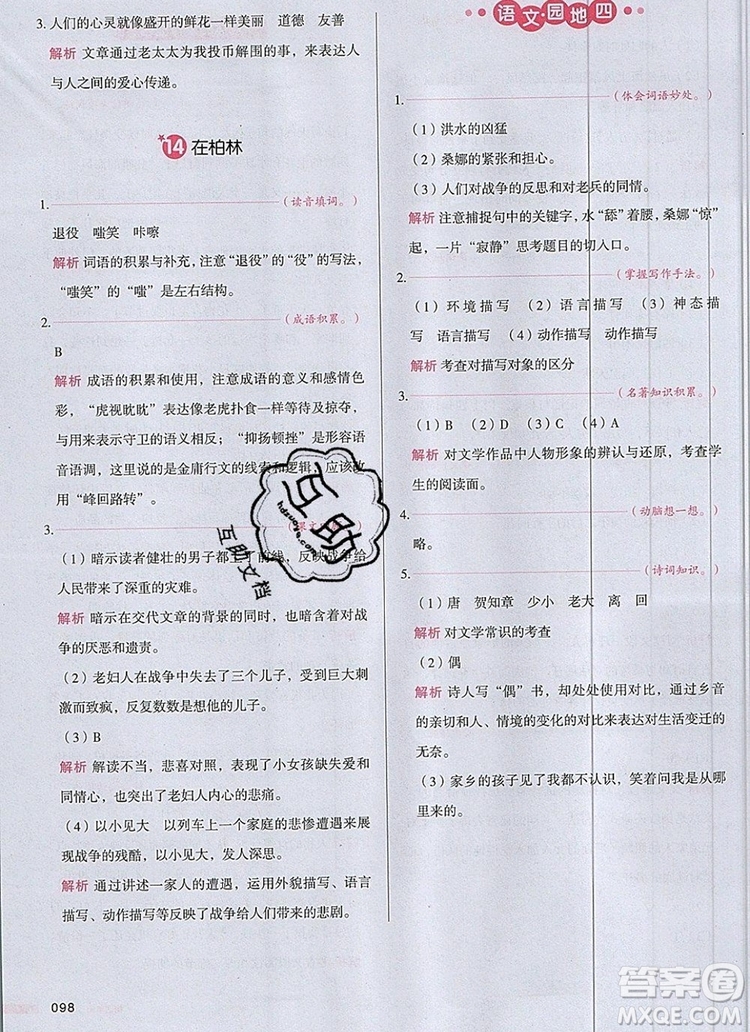 3. 人们的心灵就像盛开的鲜花一样美丽 道德 友善
解析 文章通过老太太为我投币解围的事，来表达人
与人之间的爱心传递。
14 在柏林
1.
（读音填词。）
退役 嗤笑 咔嚓
解析 词语的积累与补充，注意“退役”的“役”的写法，
“嗤笑”的“嗤”是左右结构。
2.
（成语积累。）
B
解析 成语的积累和使用，注意成语的意义和感情色
彩，“虎视眈眈”表达像老虎扑食一样等待及掠夺，
与表示守卫的语义相反；“抑扬顿挫”是形容语
音语调，这里是金庸行文的线索和逻辑，应该改
用“峰回路转”。
3.
（1）暗示读者健壮的男子都上了前线，反映战争给
人民带来了深重的灾难。
解析 暗示在交代文章的背景的同时，也表达着对战
争的厌恶和谴责。
（2）老妇人在战争中失去了三个儿子，受到巨大刺
激而致疯，反复数数的是她的儿子。
（3）B
解析 解读不当，悲喜对照，表现了小女孩缺失爱和
同情心，更加突出了老妇人内心的悲痛。
（4）以小见大 以列车上一个家庭的悲惨遭遇来展
现战争的残酷，以小见大，发人深思。
解析 通过讲述一家人的遭遇，运用外貌描写、语言
描写、动作描写等写出了战争给人们带来的悲剧。
098
语文·园地四
1.
（体会词语妙处。）
（1）洪水的凶猛
（2）桑娜的紧张和担心。
（3）人们对战争的反思和对老兵的同情。
解析 注意捕捉句中的关键字，水“舔”着腰，桑娜“惊”
起，一片“寂静”思考题目的切入口。
2.
（掌握写作手法。）
（1）环境描写 （2）语言描写 （3）神态描
写 语言描写 （4）动作描写 动作描写
解析 考查对描写对象的区分
3.
（名著知识积累。）
（1）B （2）D （3）C （4）A
解析 对文学作品中人物形象的辨认与还原，考查学
生的阅读面。
4.
（动脑想一想。）
略。
5.
（诗词知识。）
（1）唐 贺知章 少小 老大 离 回
解析 对文学常识的考查
（2）偶
解析 诗人写“偶”书，却处处使用对比，通过乡音
的亲切和人、情境的变化的对比来表达对生活变迁的
无奈。
（3）家乡的孩子见了我都不认识，笑着问我是从哪
里来的。
互助
hdzuoye.com
互助文档
答案圈
MXQE.COM